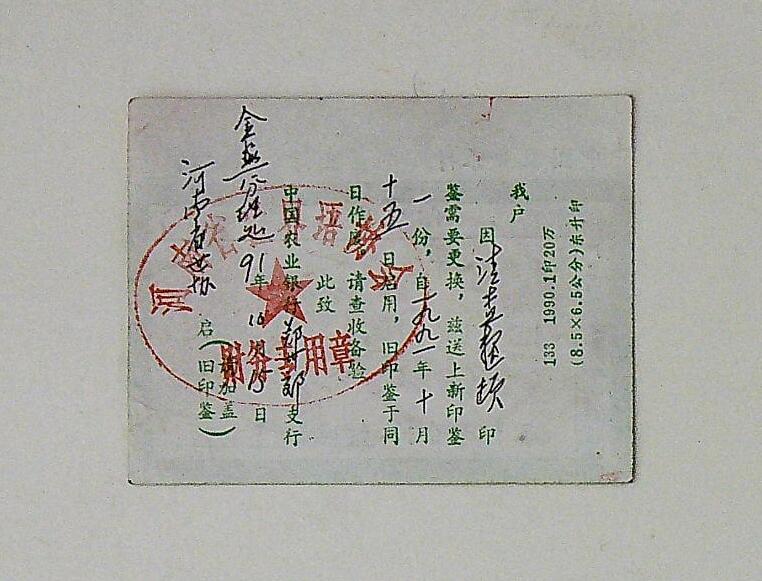 (8.5×6.5公分)东升印
133 1990.1印20万
我户
因清查整顿印
鉴需要更换，兹送上新印鉴
一份，自一九九一年十月
十五日启用，旧印鉴于同
日作废，请查收备验
此致
中国农业银行郑州郊支行
分理处 91年10月日
河南省世协 启（请加盖旧印鉴）
河南省世界语协会
财务专用章